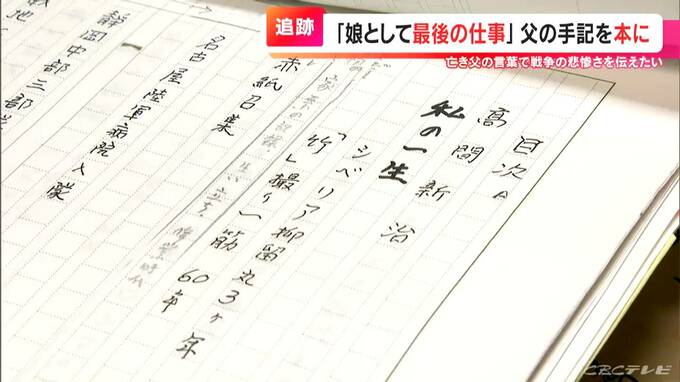 追跡
「娘として最後の仕事」父の手記を本に
亡き父の言葉で戦争の悲惨さを伝えたい
目次A
高間新治
私の一生
シベリア抑留丸3ヶ年
「竹」撮り一筋60年
赤紙召集
名古屋陸軍病院入隊
静岡中部三部
CBCテレビ